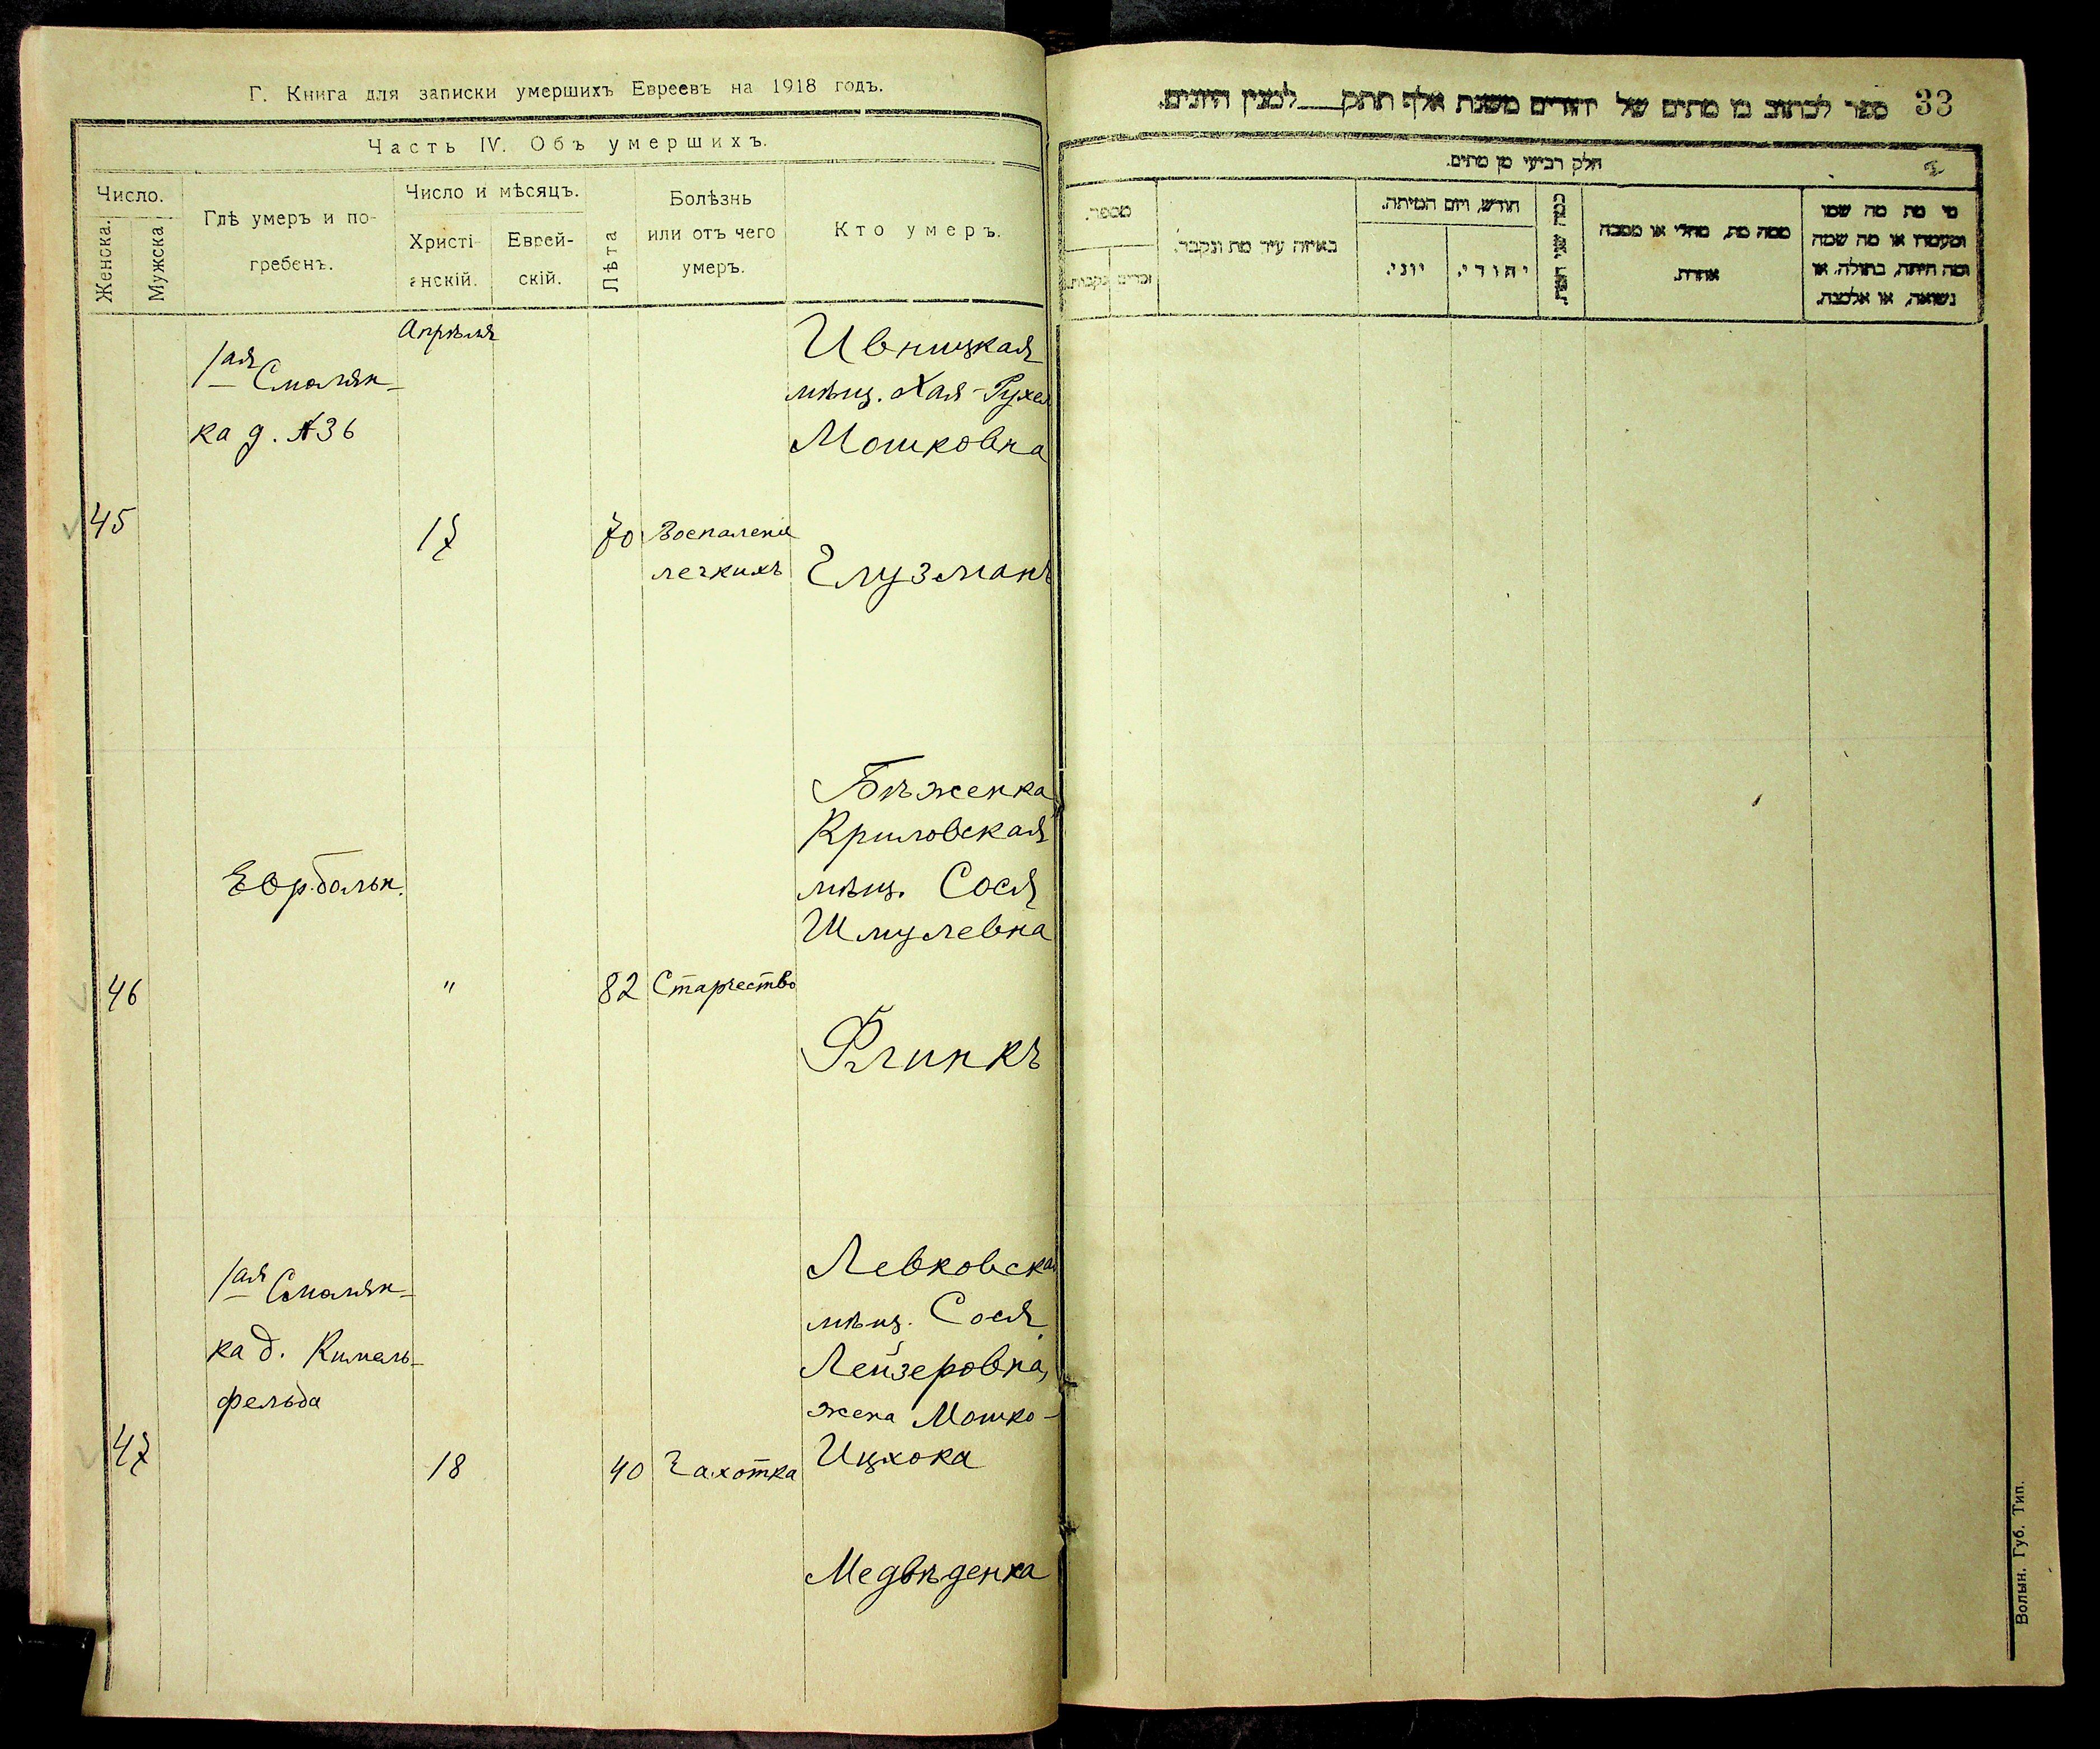 Г. Книга для записки умершихъ Евреевъ на 1918 годъ.
Часть IV. Объ умершихъ.
Число.
Женска.
Мужска
Гдѣ умеръ и по-
гребенъ.
Число и мѣсяцъ.
Христі-
анскій.
Еврей-
скій.
Лѣта
Болѣзнь
или отъ чего
умеръ.
Кто умеръ.
Апрѣля
1ая Смолян-
ка д. №36
Ивницкая
мѣщ. Хая-Рухля
Мошковна
45
17
70
Воспаленіе
легкихъ
Глузманъ
Бѣженка
Криловская
мѣщ. Сося
Шмулевна
Евр. больн.
46
"
82
Старчество
Флинкъ
1ая Смолян-
ка д. Кимель-
фельда
Левковская
мѣщ. Сося
Лейзеровна,
жена Мошко-
Ицхока
47
18
40
Чахотка
Медвѣденка
ספר לכתוב בו מתים של יהודים משנת אלף תתק לפנין היונים.
33
חלק רביעי מן מתים.
מספר.
זכרים
נקבות.
באיזה עיר מת ונקבר.
חודש, ויום המיתה.
יוני.
יהודי.
כמה שני
ממה מת, מחלי או מסבה
אחרת.
מי מת מה שמו
ומעמדו או מה שמה
ומה היתה, בתולה, או
נשואה, או אלמנה.
Волын. Губ. Тип.